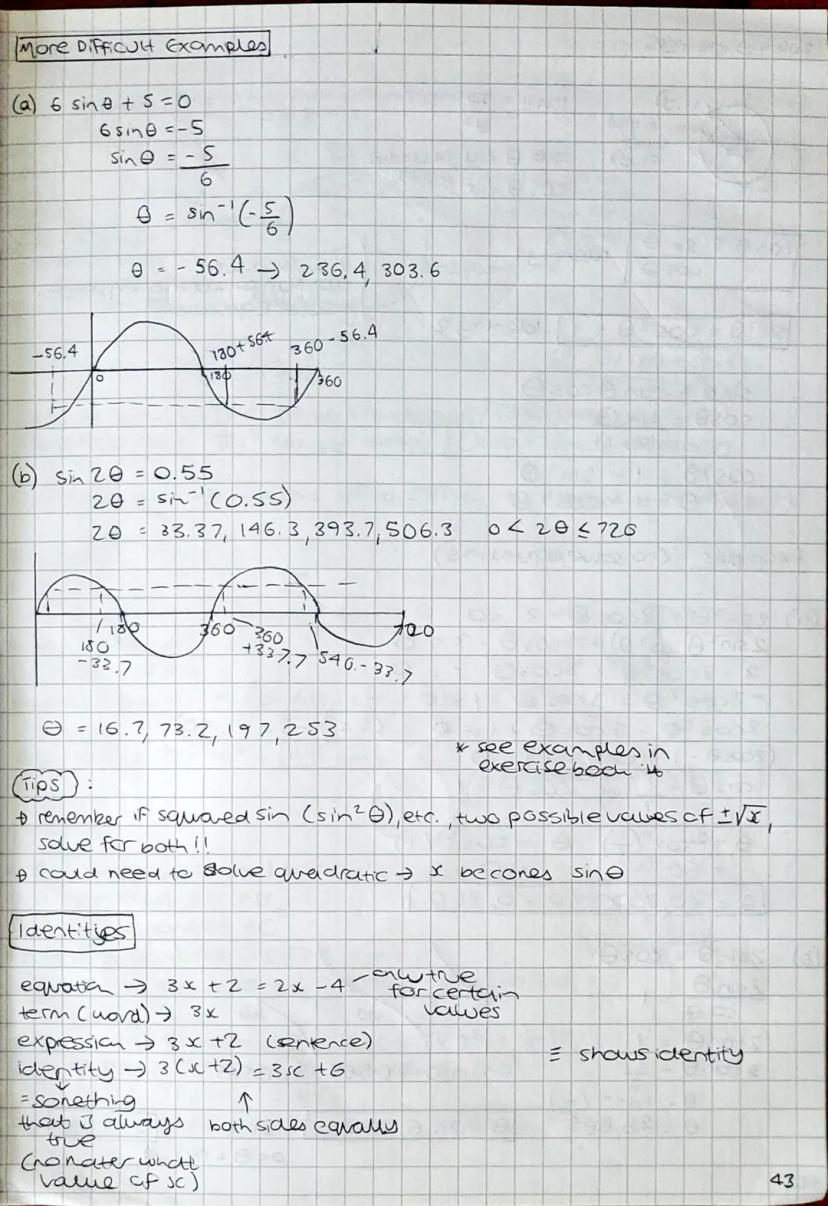 More Difficult Examples
(a) 6 sin θ + 5 = 0
6 sin θ = -5
sin θ = -5/6
θ = sin⁻¹(-5/6)
θ = -56.4 → 236.4, 303.6
-56.4 0 180 180+56.4 360-56.4 360
(b) sin 2θ = 0.55
2θ = sin⁻¹(0.55)
2θ = 33.37, 146.3, 393.7, 506.3 0 < 2θ ≤ 720
180 360 720
180 -33.7 360 +337.7 540-33.7
θ = 16.7, 73.2, 197, 253
* see examples in
exercise book
Tips :
remember if squared sin (sin²θ), etc., two possible values of ±√x,
solve for both!!
could need to solve quadratic → x becomes sinθ
Identities
equation → 3x + 2 = 2x - 4 - only true
for certain
values
term (word) → 3x
expression → 3x + 2 (sentence)
≡ shows identity
identity → 3(x+2) = 3x + 6
= something
that is always both sides equally
true
(no mater whatt
value of x)
43